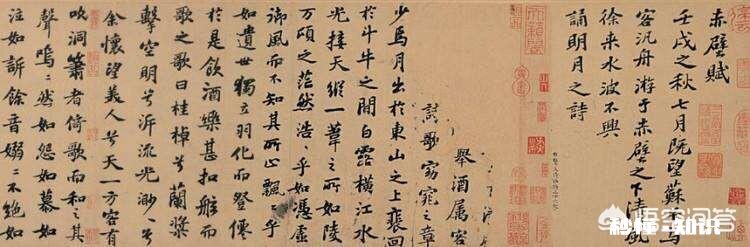 赤壁賦
壬戌之秋七月既望蘇子與
客汎舟游于赤壁之下清風
徐來水波不興
誦明月之詩
舉酒屬客
歌窈窕之章
少焉月出於東山之上裴回
於斗牛之間白露橫江水
光接天縱一葦之所如陵
萬頃之茫然浩〻乎如憑虛
御風而不知其所止飄〻乎
如遺世獨立羽化而登僊
於是飲酒樂甚扣舷而
歌之歌曰桂棹兮蘭槳
擊空明兮泝流光渺〻兮
余懷望美人兮天一方客有
吹洞簫者倚歌而和之其
聲嗚〻然如怨如慕如
泣如訴餘音嫋〻不絕如
悟空问答